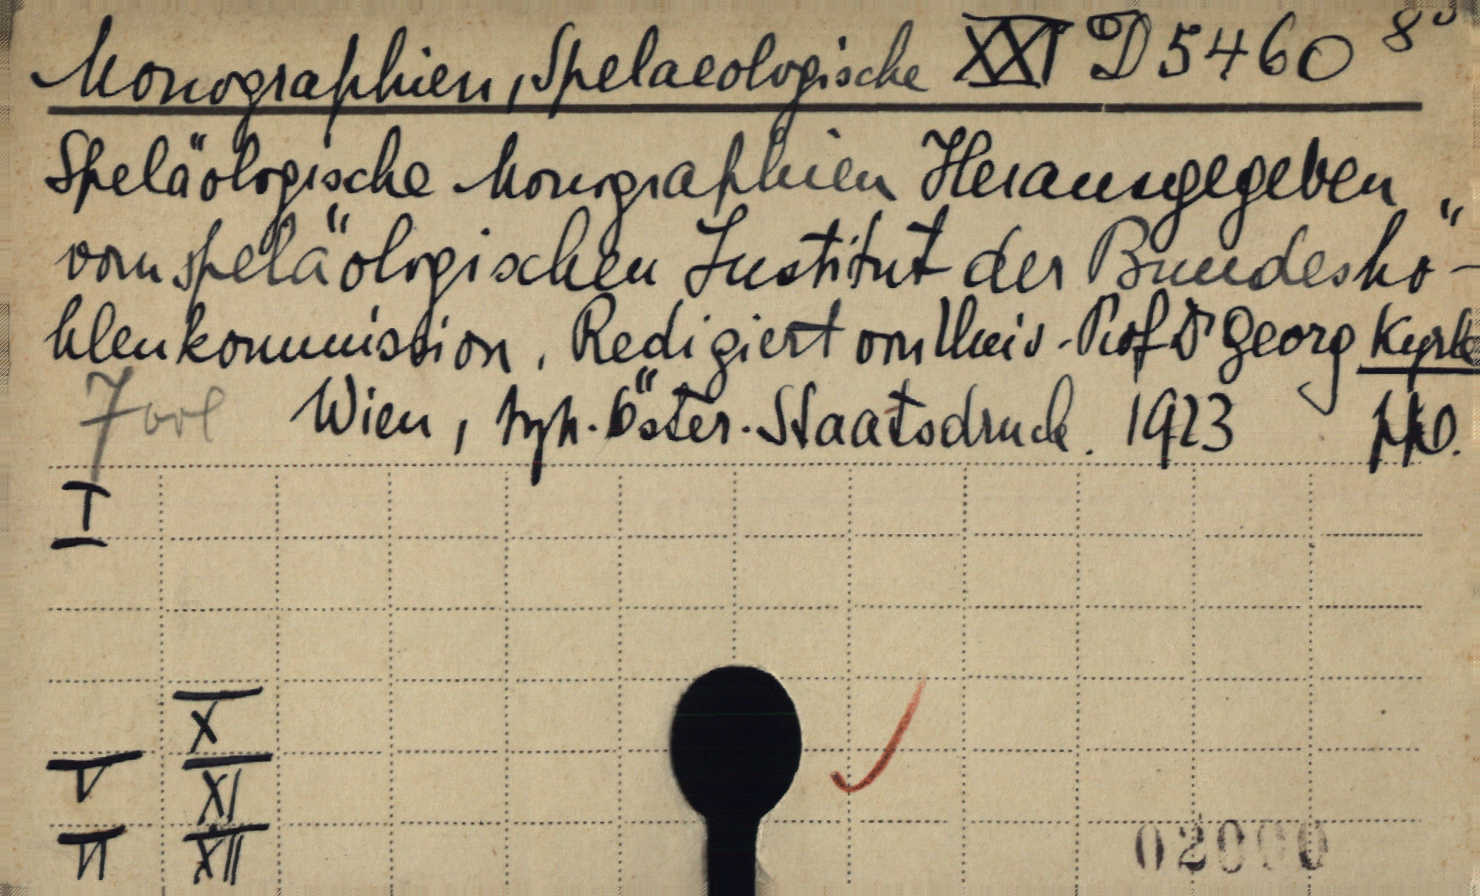 Monographien, Spelaeologische XXI D 5460 8°
Speläologische Monographien Herausgegeben
vom speläologischen Institut der Bundeshö-
hlenkommission, Redigiert von Univ.-Prof Dr Georg Kyrle
7 vol Wien, typ. Öster. Staatsdruck. 1923
I
X
V XI
VI XII
02000